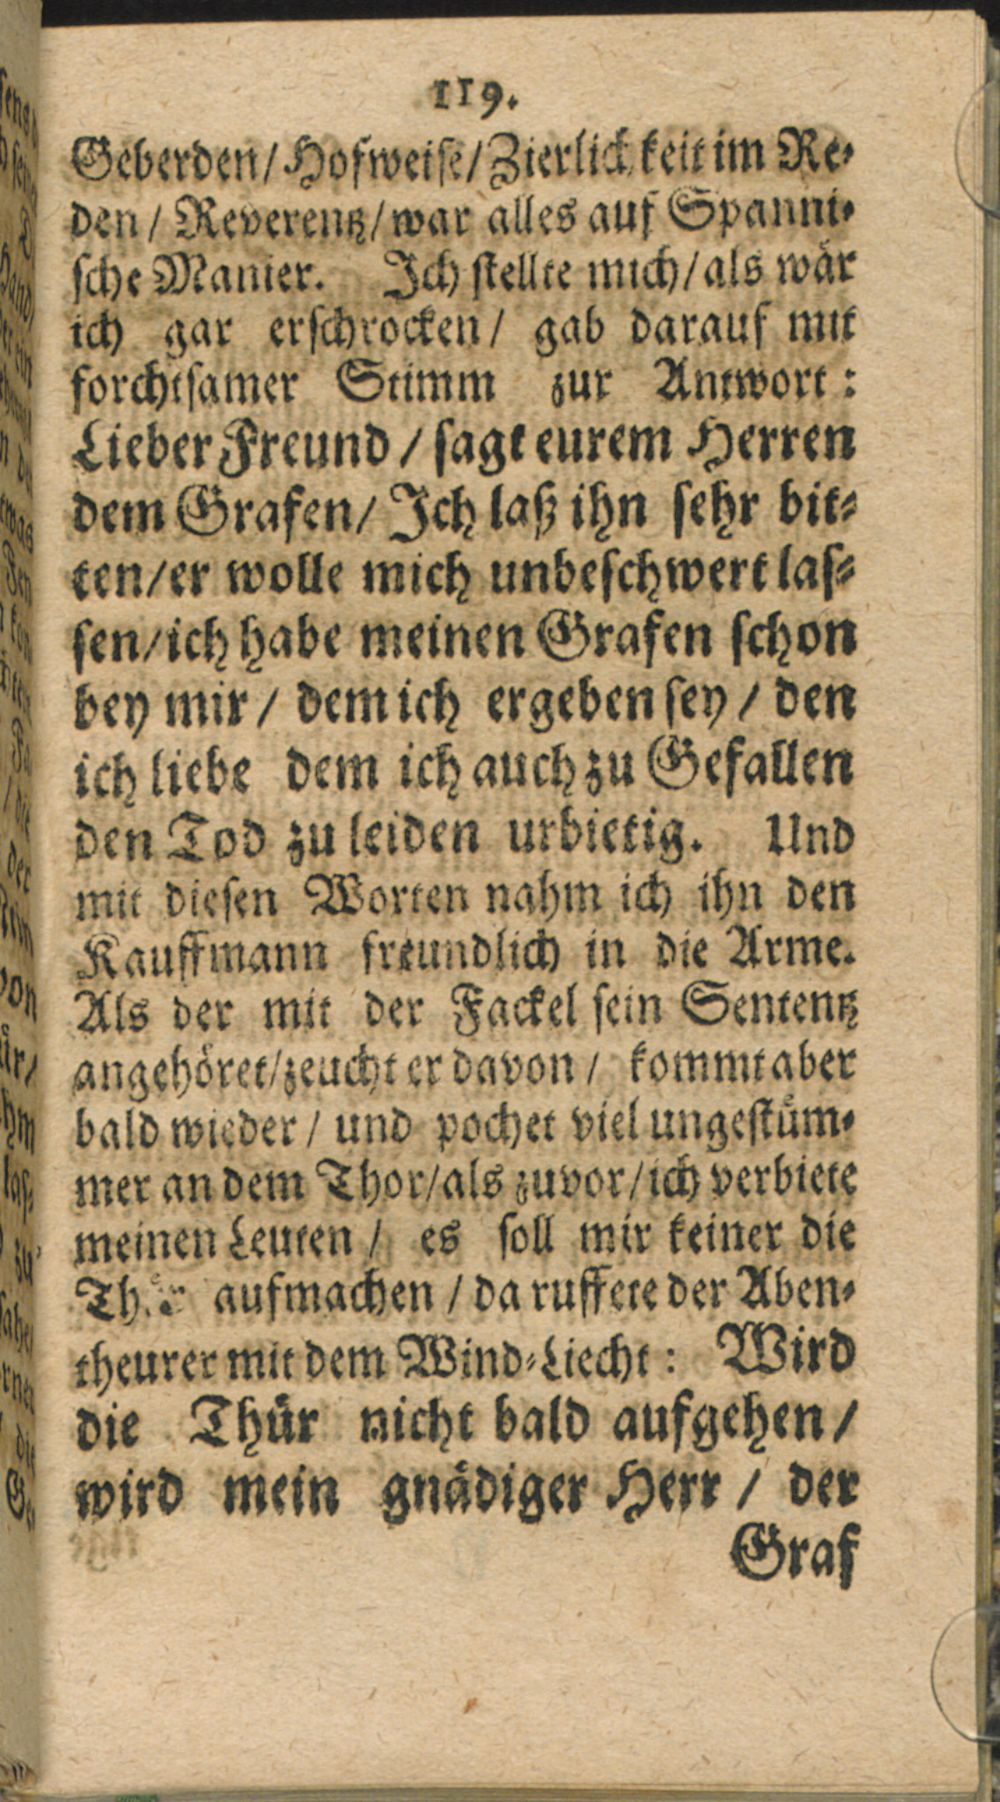 119.
Geberden/ Hofweise/ Zierlichkeit im Re-
den/ Reverentz/ war alles auf Spanni-
sche Manier. Ich stellte mich/ als wär
ich gar erschrocken/ gab darauf mit
forchtsamer Stimm zur Antwort:
Lieber Freund/ sagt eurem Herren
dem Grafen/ Ich laß ihn sehr bit-
ten/ er wolle mich unbeschwert las-
sen/ ich habe meinen Grafen schon
bey mir/ dem ich ergeben sey/ den
ich liebe dem ich auch zu Gefallen
den Tod zu leiden urbietig. Und
mit diesen Worten nahm ich ihn den
Kauffmann freundlich in die Arme.
Als der mit der Fackel sein Sententz
angehöret/ zeucht er davon/ kommt aber
bald wieder/ und pochet viel ungestüm-
mer an dem Thor/ als zuvor/ ich verbiete
meinen Leuten/ es soll mir keiner die
aufmachen/ da ruffete der Aben-
theurer mit dem Wind-Liecht: Wird
die Thür nicht bald aufgehen/
wird mein gnädiger Herr/ der
Graf